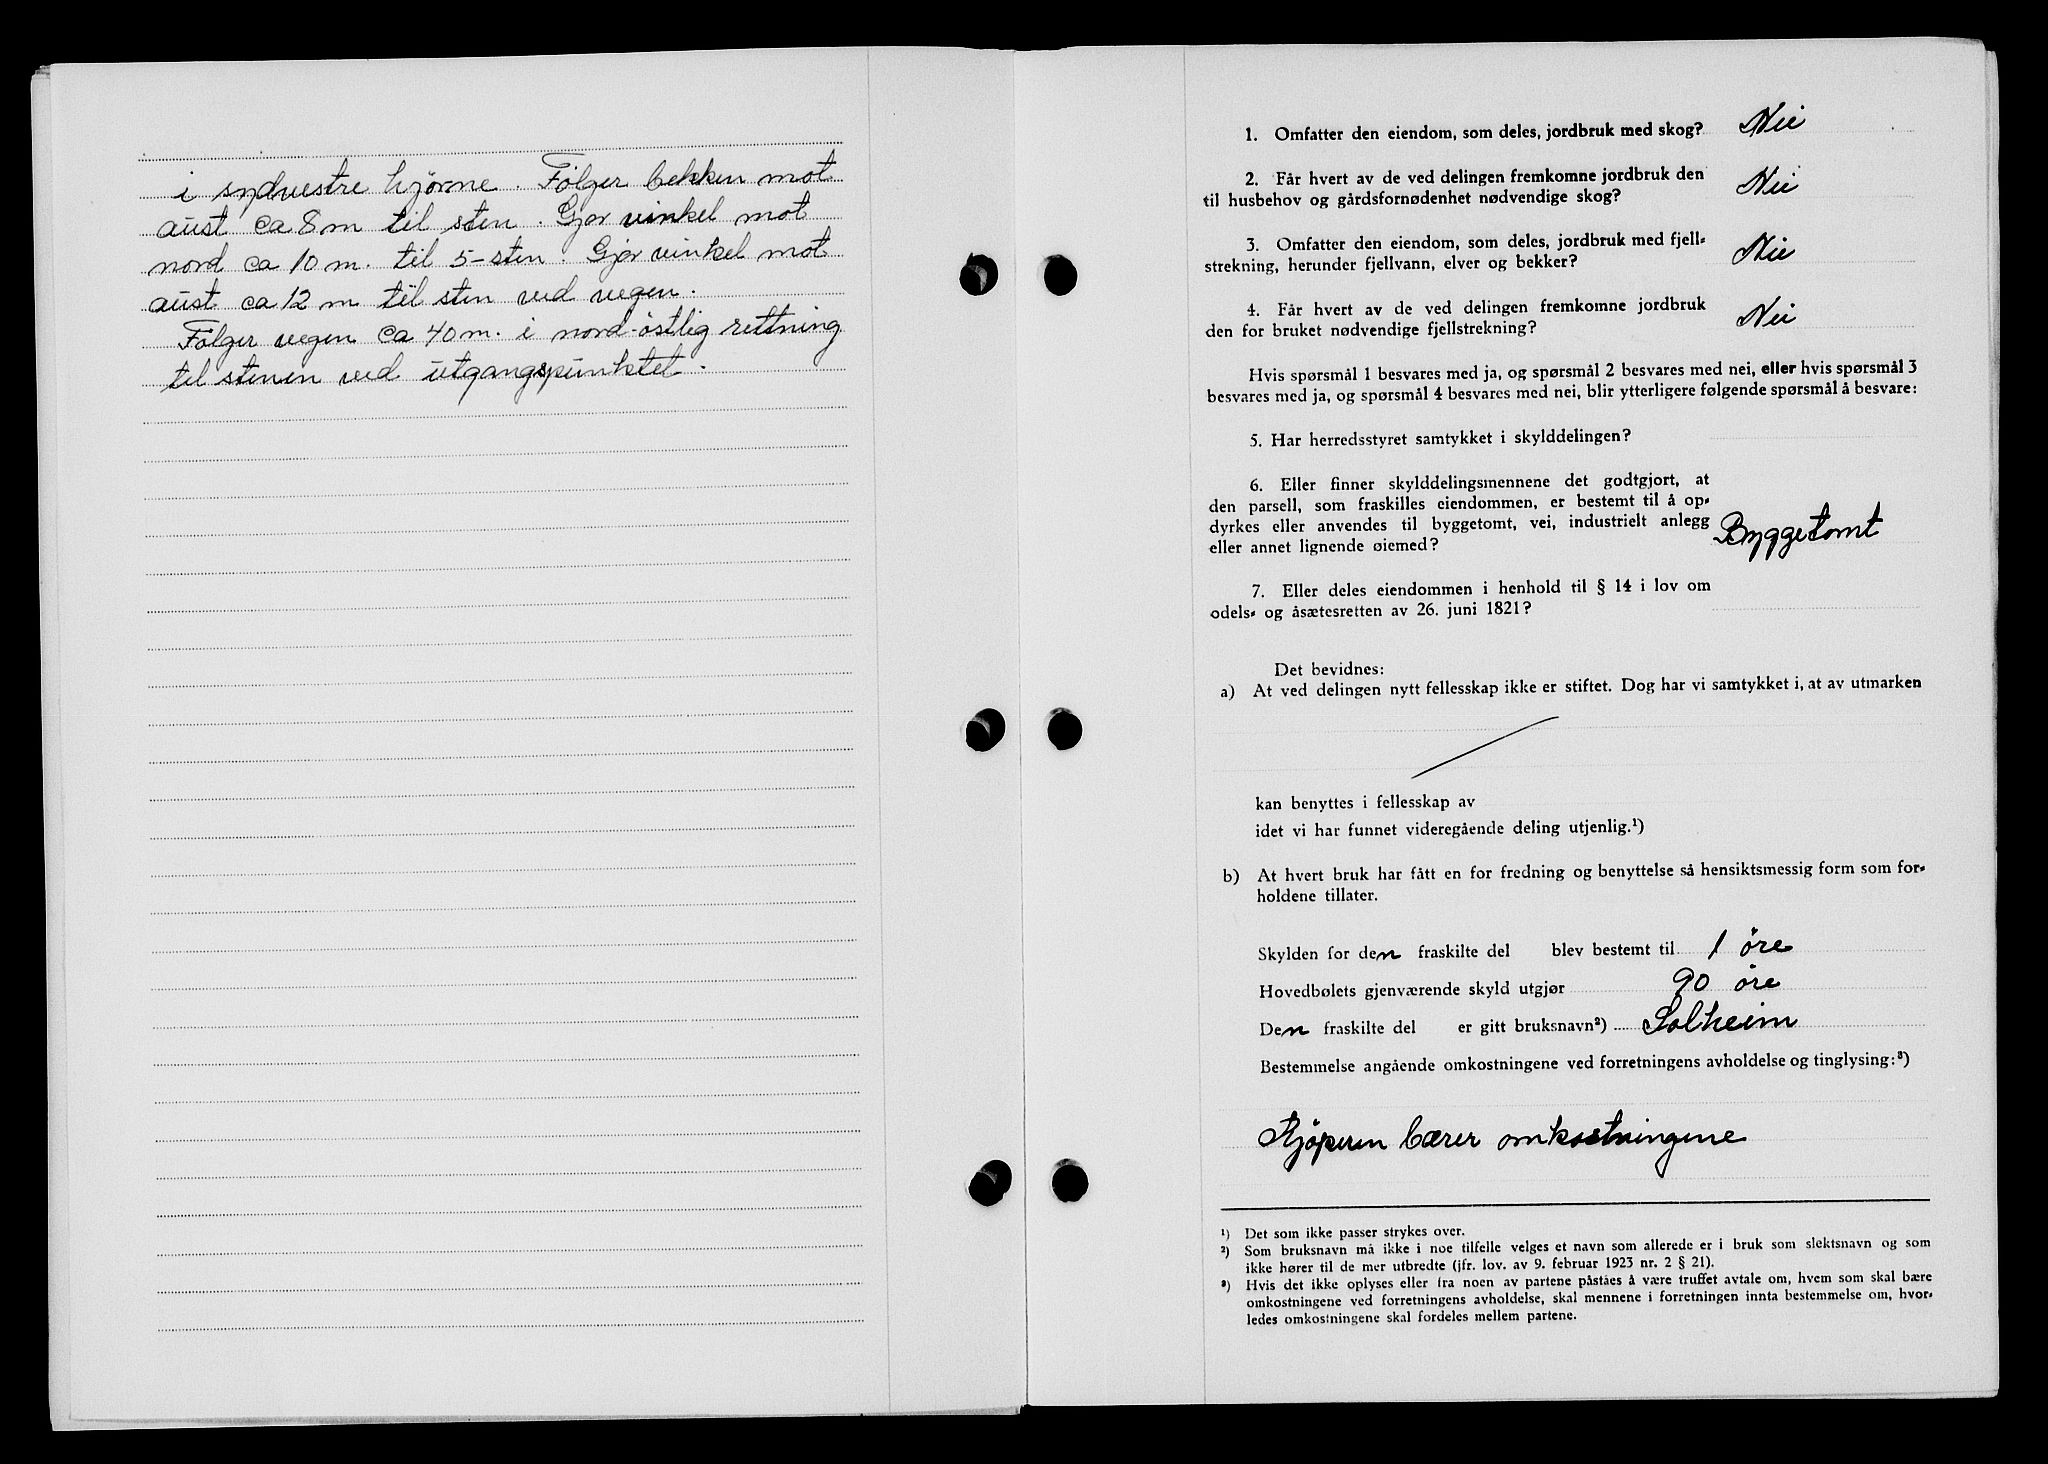 i sydvestre hjørne. Følger bekken mot
aust ca 8 m til sten. Gjør vinkel mot
nord ca 10 m. til 5-sten. Gjør vinkel mot
aust ca 12 m til sten ved vegen.
Følger vegen ca 40 m. i nord-östlig rettning
til stenen ved utgangspunktet.
1. Omfatter den eiendom, som deles, jordbruk med skog? Nei
2. Får hvert av de ved delingen fremkomne jordbruk den
til husbehov og gårdsfornødenhet nødvendige skog? Nei
3. Omfatter den eiendom, som deles, jordbruk med fjell-
strekning, herunder fjellvann, elver og bekker? Nei
4. Får hvert av de ved delingen fremkomne jordbruk
den for bruket nødvendige fjellstrekning? Nei
Hvis spørsmål 1 besvares med ja, og spørsmål 2 besvares med nei, eller hvis spørsmål 3
besvares med ja, og spørsmål 4 besvares med nei, blir ytterligere følgende spørsmål å besvare:
5. Har herredsstyret samtykket i skylddelingen?
6. Eller finner skylddelingsmennene det godtgjort, at
den parsell, som fraskilles eiendommen, er bestemt til å op-
dyrkes eller anvendes til byggetomt, vei, industrielt anlegg
eller annet lignende øiemed? Byggetomt
7. Eller deles eiendommen i henhold til § 14 i lov om
odels- og åsætesretten av 26. juni 1821?
Det bevidnes:
a) At ved delingen nytt fellesskap ikke er stiftet. Dog har vi samtykket i, at av utmarken
kan benyttes i fellesskap av
idet vi har funnet videregående deling utjenlig.¹)
b) At hvert bruk har fått en for fredning og benyttelse så hensiktsmessig form som for-
holdene tillater.
Skylden for den fraskilte del blev bestemt til 1 øre
Hovedbølets gjenværende skyld utgjør 90 øre
Den fraskilte del er gitt bruksnavn²) Solheim
Bestemmelse angående omkostningene ved forretningens avholdelse og tinglysing:³)
Kjöperen bærer omkostningene
¹) Det som ikke passer strykes over.
²) Som bruksnavn må ikke i noe tilfelle velges et navn som allerede er i bruk som slektsnavn og som
ikke hører til de mer utbredte (jfr. lov. av 9. februar 1923 nr. 2 § 21).
³) Hvis det ikke oplyses eller fra noen av partene påståes å være truffet avtale om, hvem som skal bære
omkostningene ved forretningens avholdelse, skal mennene i forretningen innta bestemmelse om, hvor-
ledes omkostningene skal fordeles mellem partene.